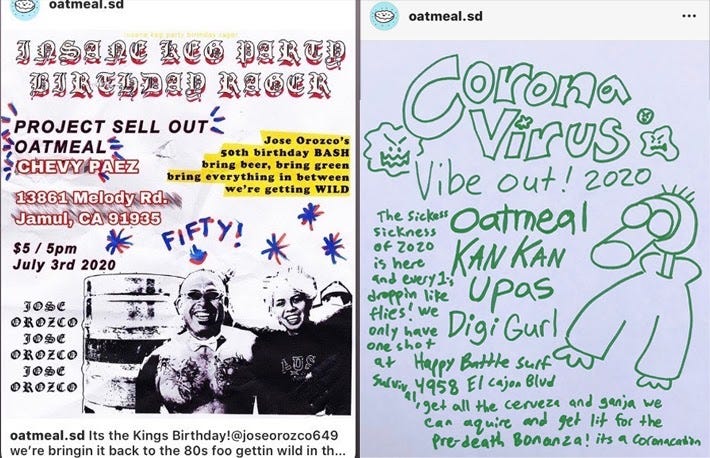 oatmeal.sd
insane keg party birthday rager
INSANE KEG PARTY
BIRTHDAY RAGER
PROJECT SELL OUT
OATMEAL
CHEVY PAEZ
Jose Orozco's
50th birthday BASH
bring beer, bring green
bring everything in between
we're getting WILD
13861 Melody Rd.
Jamul, CA 91935
$5 / 5pm
July 3rd 2020
FIFTY!
JOSE
OROZCO
JOSE
OROZCO
JOSE
OROZCO
oatmeal.sd Its the Kings Birthday!@joseorozco649
we're bringin it back to the 80s foo gettin wild in th...
oatmeal.sd
Corona
Virus
Vibe out! 2020
The Sickess
sickness
of 2020
is here
and every 1s
droppin like
flies! we
only have
one shot
at
Surviv
al,
Oatmeal
KAN KAN
Upas
Digi Gurl
Happy Battle Surf
4958 El cajon Blvd
get all the cerveza and ganja we
can aquire and get lit for the
pre-death Bonanza! its a Coronacation